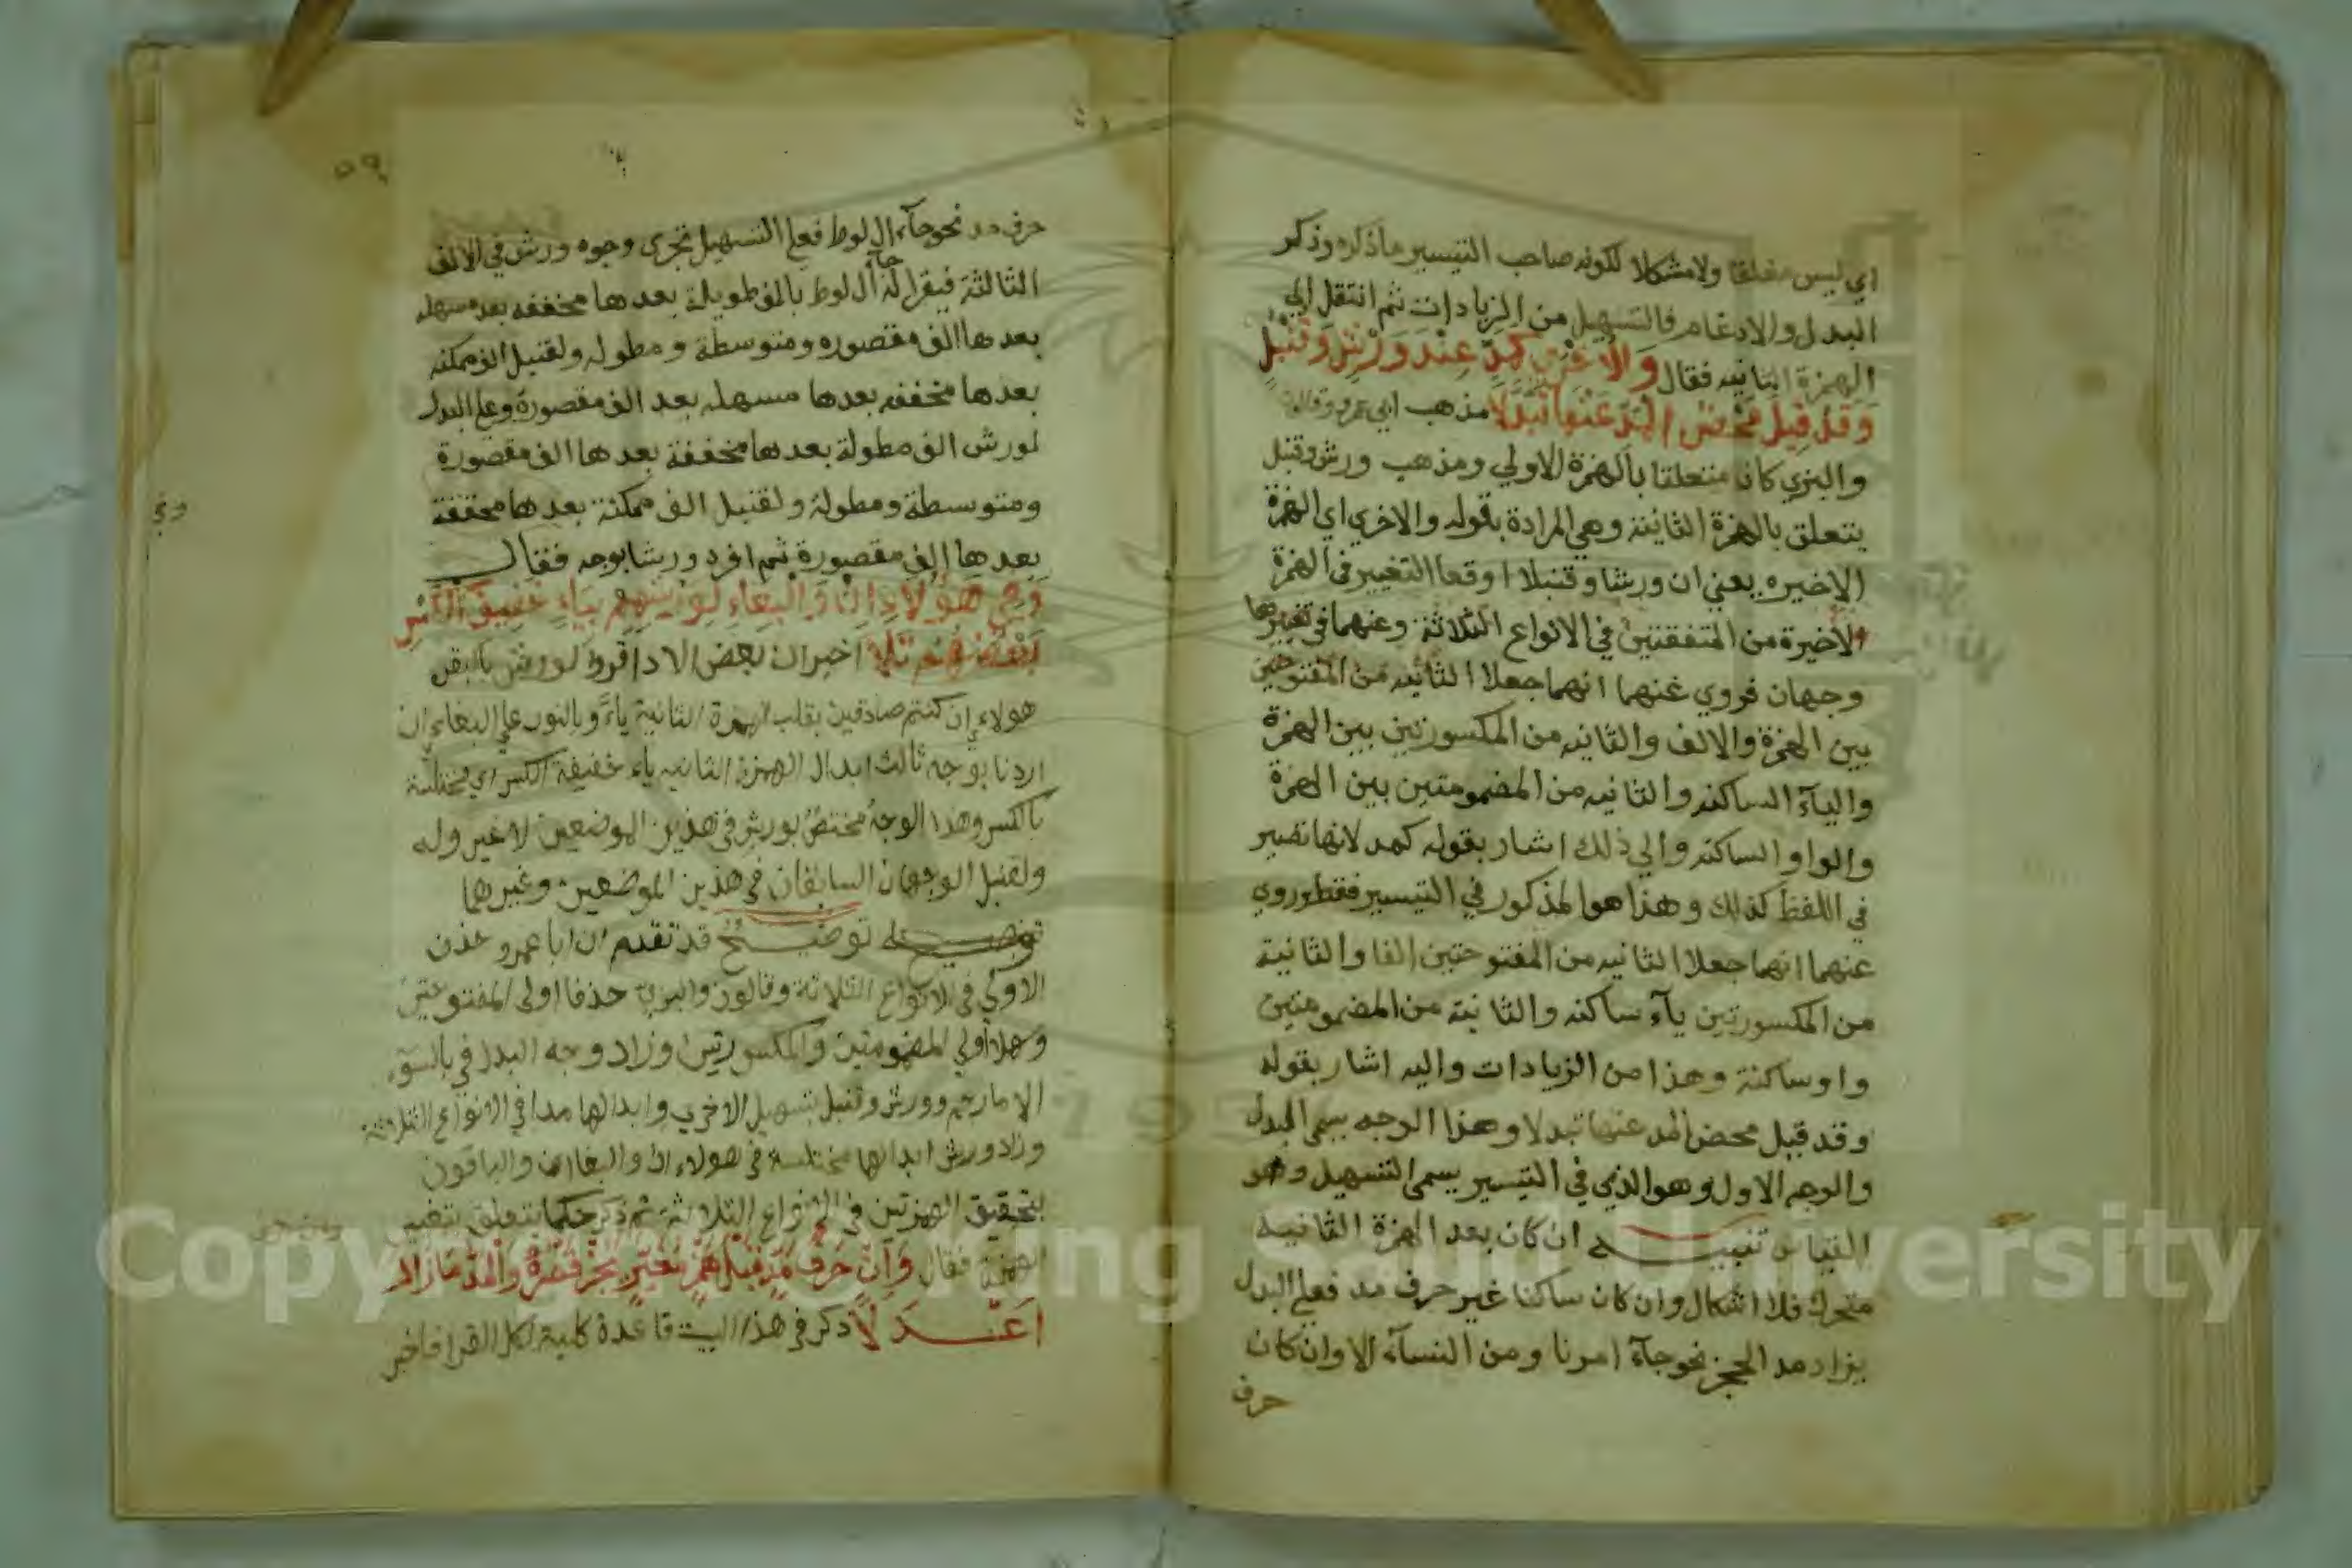 اي ليس مغلقا ولا مشكلا لكونه صاحب التيسير ما ذكره وذكر
البدل والادغام فالتسهيل من الزيادات ثم انتقل الي
الهمزة الثانيه فقال وَالأُخْرَى كَمَدٍّ عِنْدَ وَرْشٍ وَقُنْبُلٍ
وَقَدْ قِيلَ مَحْضُ الْمَدِّ عَنْهَا تَبَدَّلَا مذهب ابي عمرو وقالون
والبزي كان متعلقا بالهمزة الاولي ومذهب ورش وقنبل
يتعلق بالهمزة الثانية وهي المرادة بقوله والاخري اي الهمزة
الاخيره يعني ان ورشا وقنبلا اوقعا التغيير في الهمزة
الاخيرة من المتفقتين في الانواع الثلاثة وعنهما في تغييرها
وجهان فروي عنهما انهما جعلا الثانيه من المفتوحتين
بين الهمزة والالف والثانيه من المكسورتين بين الهمزة
والياء الساكنه والثانيه من المضمومتين بين الهمزة
والواو الساكنه والي ذلك اشار بقوله كمد لانها تصير
في اللفظ كذلك وهذا هو المذكور في التيسير فقط وروي
عنهما انهما جعلا الثانيه من المفتوحتين الفا والثانية
من المكسورتين ياء ساكنه والثانية من المضمومتين
واو ساكنة وهذا من الزيادات واليه اشار بقوله
وقد قيل محض المد عنها تبدلا وهذا الوجه يسمي البدل
والوجه الاول وهو الذي في التيسير يسمي التسهيل وهو
القياس تنبيه ان كان بعد الهمزة الثانيه
متحرك فلا اشكال وان كان ساكنا غير حرف مد فعلي البدل
يزاد مد الحجز نحو جآء امرنا ومن النسآء الا وان كان
حرف
٥٩
حرف مد نحو جآء ال لوط فعلي التسهيل تجري وجوه ورش في الالف
الثالثة فيقرا له جآء آل لوط بالف طويلة بعدها مخففه بعد مسهله
بعدها الف مقصوره ومتوسطة ومطوله ولقنبل الف ممكنه
بعدها مخففه بعدها مسهله بعد الف مقصورة وعلي البدل
لورش الف مطولة بعدها مخففة بعدها الف مقصورة
ومتوسطة ومطولة ولقنبل الف ممكنة بعدها مخففة
بعدها الف مقصورة ثم افرد ورشا بوجه فقال
وَفِي هَؤُلَاءِ إِنْ وَالْبِغَاءِ إِنْ لِوَرْشِهِمْ بِيَاءٍ خَفِيفِ الْكَسْرِ
بَعْضُهُمْ تَلَا اخبر ان بعض الادا قروا لورش بالبقرة
هولاء ان كنتم صادقين بقلب الهمزة الثانية ياء وبالنور علي البغاء ان
اردنا بوجه ثالث ابدال الهمزة الثانيه ياء خفيفة الكسر اي مختلسة
بالكسر وهذا الوجه مختص بورش في هذين الموضعين لا غير وله
ولقنبل الوجهان السابقان في هذين الموضعين وغيرهما
توضيح قد تقدم ان ابا عمرو حذف
الاولي في الانواع الثلاثة وقالون والبزي حذفا اولي المفتوحتين
وسهلا اولي المضمومتين والمكسورتين وزاد وجه البدل في بالسوء
الا ما رحم وورش وقنبل بتسهيل الاخري وابدالها مدا في الانواع الثلاثة
وزاد ورش ابدالها مختلسة في هولاء ان والبغا ان والباقون
بتحقيق الهمزتين في الانواع الثلاثة ثم ذكر حكما يتعلق بتغيير
الهمزة فقال وَإِنْ حَرْفُ مَدٍّ قَبْلَ هَمْزٍ مُغَيَّرٍ يَجُزْ قَصْرُهُ وَالْمَدُّ مَا زَالَ
أَعْدَلَا ذكر في هذا البيت قاعدة كلية لكل القرا فاخبر
Copyright © King Saud University